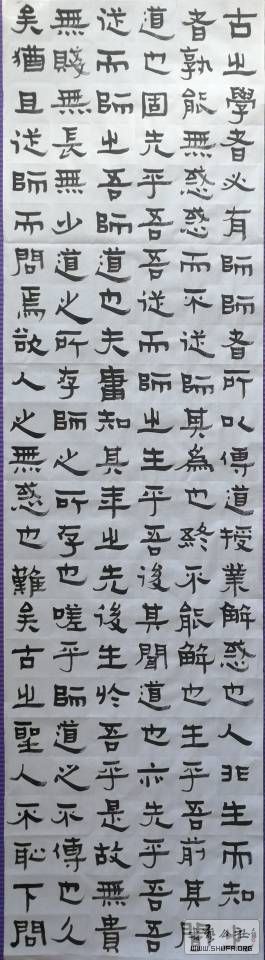 古之學者必有師師者所以傳道授業解惑也人非生而知
者孰能無惑惑而不從師其為也終不能解也生乎吾前其聞
道也固先乎吾吾從而師之生乎吾後其聞道也亦先乎吾
從而師之吾師道也夫庸知其年之先後生於吾乎是故無貴
無賤無長無少道之所存師之所存也嗟乎師道之不傳也久
矣猶且從師而問焉欲人之無惑也難矣古之聖人不恥下問